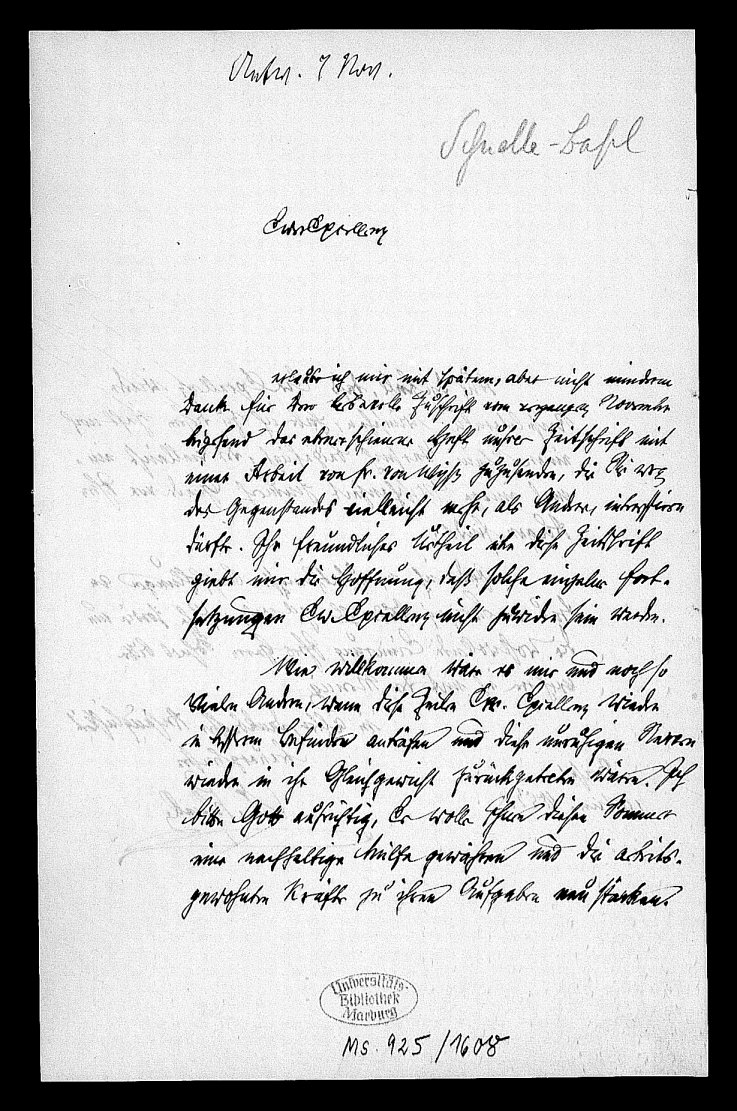 Antw. 7 Nov.
Schnelle-Basel
Ew. Excellenz
erlaube ich mir mit spätem, aber nicht minderem
Dank für Ihre liebevolle Zuschrift vom vergangenen November
das Heft unsrer Zeitschrift mit
einer Arbeit von Fr. von Wyß zuzusenden, die Sie wegen
des Gegenstandes vielleicht mehr, als Andere, interessiren
dürfte. Ihr freundliches Urtheil über diese Zeitschrift
giebt mir die Hoffnung, daß solche einzelne Fort-
setzungen Ew. Excellenz nicht zuwider sein werden.
Wie willkommen wäre es mir und noch so
Vielen Andern, wenn diese Zeilen Ew. Excellenz wieder
in besserem Befinden anträfen und diese unruhigen Nerven
wieder in ihr Gleichgewicht zurückgetreten wären. Ich
bitte Gott aufrichtig, Er wolle Ihnen diesen Sommer
eine nachhaltige Hülfe gewähren und die arbeits-
gewohnten Kräfte zu ihren Aufgaben neu stärken.
Universitäts-
Bibliothek
Marburg
Ms. 925/1608